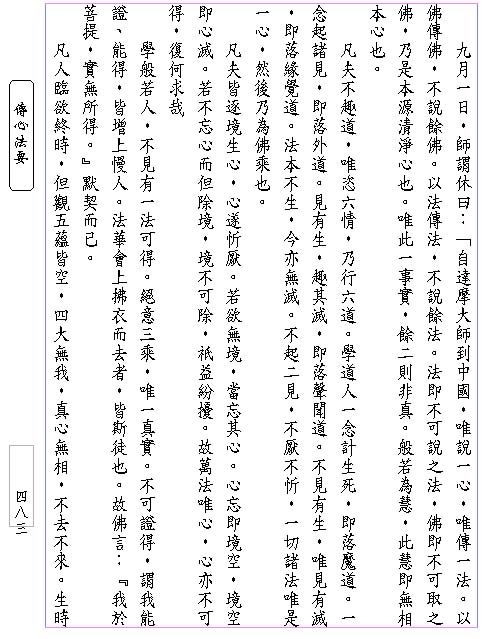 九月一日，師謂休曰：「自達摩大師到中國，唯說一心，唯傳一法。以
佛傳佛，不說餘佛。以法傳法，不說餘法。法即不可說之法，佛即不可取之
佛，乃是本源清淨心也。唯此一事實，餘二則非真。般若為慧，此慧即無相
本心也。
凡夫不趣道，唯恣六情，乃行六道。學道人一念計生死，即落魔道。一
念起諸見，即落外道。見有生，趣其滅，即落聲聞道。不見有生，唯見有滅
，即落緣覺道。法本不生，今亦無滅。不起二見，不厭不忻，一切諸法唯是
一心，然後乃為佛乘也。
凡夫皆逐境生心，心遂忻厭。若欲無境，當忘其心。心忘即境空，境空
即心滅。若不忘心而但除境，境不可除，祇益紛擾。故萬法唯心，心亦不可
得，復何求哉
學般若人，不見有一法可得。絕意三乘，唯一真實。不可證得，謂我能
證、能得，皆增上慢人。法華會上拂衣而去者，皆斯徒也。故佛言：『我於
菩提，實無所得。』默契而已。
凡人臨欲終時，但觀五蘊皆空，四大無我，真心無相，不去不來。生時
傳心法要
四八三